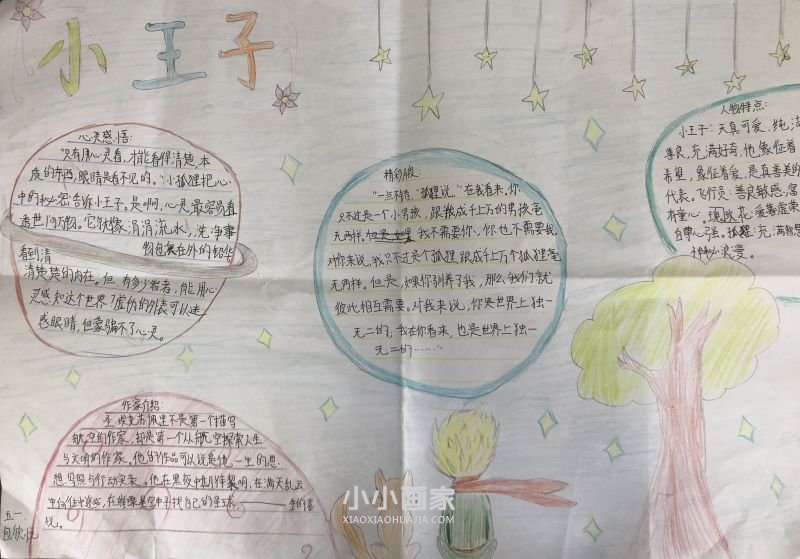 小王子
心灵感悟:
"只有用心灵看,才能看得清楚,本
质的东西,眼睛是看不见的。"小狐狸把心
中的秘密告诉小王子。是啊,心灵最容易看
透世间万物。它就像涓涓流水,洗净事
物包裹在外的铅华
看到清
清楚楚的内在。但,有多少智者,能用心
灵感知这个世界?虚伪的外表可以迷
惑眼睛,但蒙骗不了心灵。
精彩片段:
"一点不错,"狐狸说。"在我看来,你
只不过是一个小男孩,跟成千上万的男孩毫
无两样。我不需要你,你也不需要我。
对你来说,我只不过是个狐狸,跟成千上万个狐狸毫
无两样。但是,如果你驯养了我,那么,我们就
彼此相互需要。对我来说,你是世界上独一
无二的;我在你看来,也是世界上独一
无二的……"
人物特点:
小王子:天真可爱,纯洁
善良,充满好奇,他象征着
希望,象征着爱,是真善美的
代表。飞行员:善良敏感,富
有童心。玫瑰花:爱慕虚荣
自尊心强。狐狸:充满智慧
神秘浪漫。
作家介绍:
圣·埃克苏佩里不是第一个描写
航空的作家,却是第一个从航空探索人生
与文明的作家。他的作品可以说是他一生的思
想写照与行动实录。他在黑夜中期待黎明,在满天乱云
中向往中途站,在璀璨星空中寻找自己的星球
说。
五一
包欣悦
小小画家
XIAOXIAOHUAJIA.COM